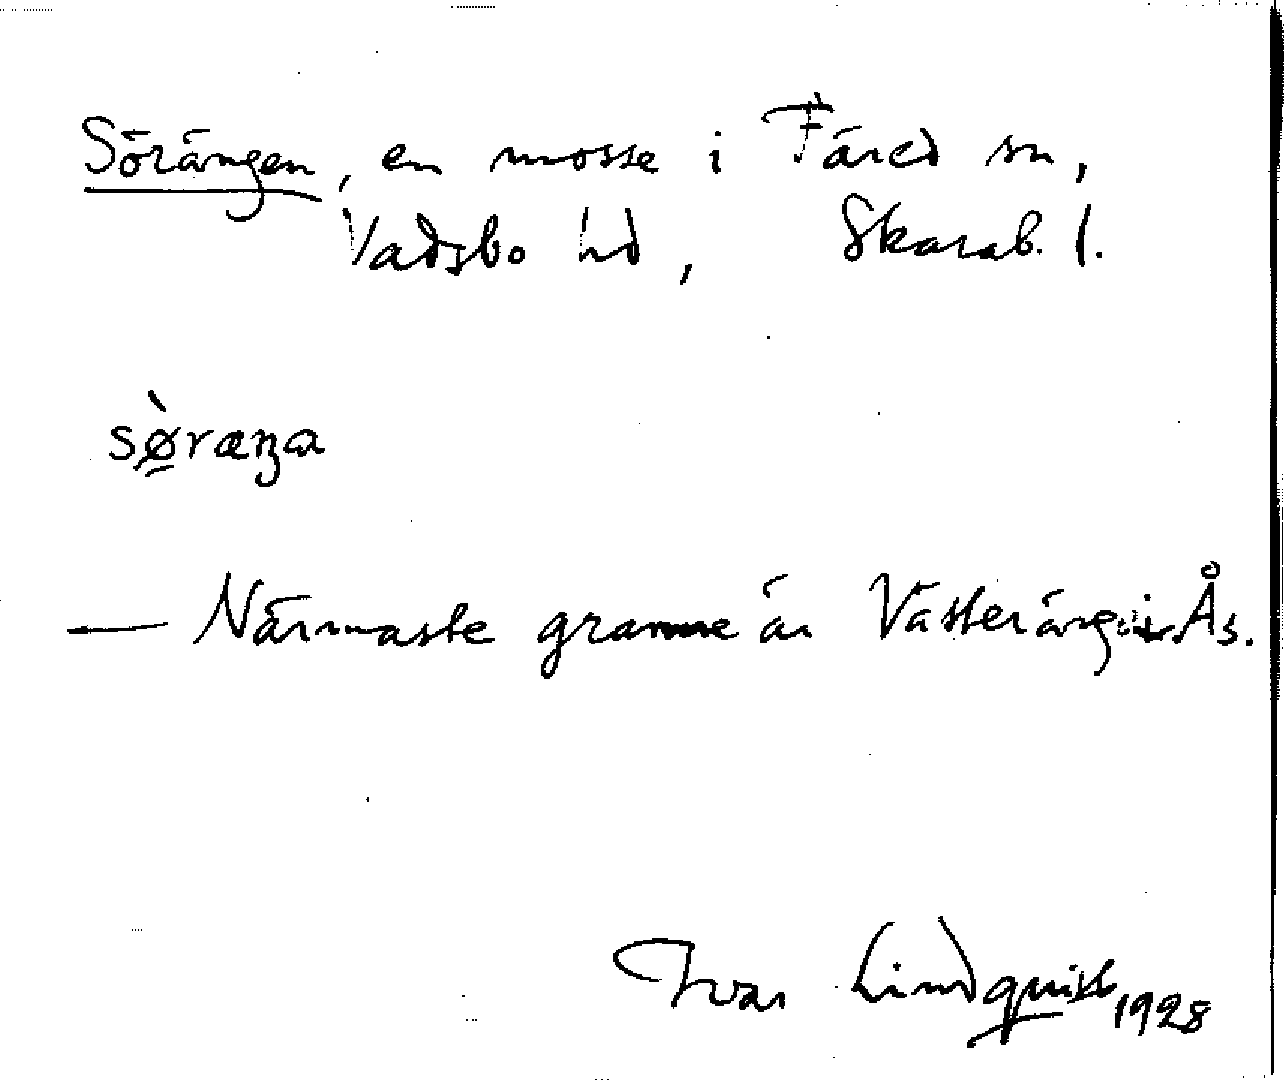 Sörängen, en mosse i Färed sn,
Vadsbo hd, Skarab. l.
sø̀ræŋa
— Närmaste granne är Västeräng i Ås.
Ivar Lindquist 1928